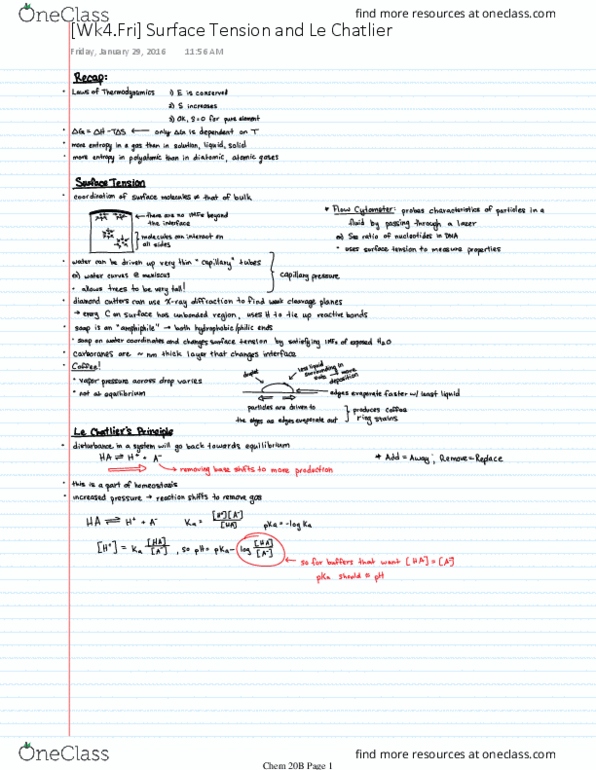 OneClass
find more resources at oneclass.com
[Wk4.Fri] Surface Tension and Le Chatlier
Friday, January 29, 2016 11:56 AM
Recap:
• Laws of Thermodynamics 1) E is conserved
2) S increases
3) 0K, S=0 for pure element
• ΔG = ΔH - TΔS ← only ΔG is dependent on T
• more entropy in a gas than in solution, liquid, solid
• more entropy in polyatomic than in diatomic, atomic gases
Surface Tension
• coordination of surface molecules ≠ that of bulk
← there are no IMFs beyond
the interface
molecules can interact on
all sides
* Flow Cytometer: probes characteristics of particles in a
fluid by passing through a lazer
ex) see ratio of nucleotides in DNA
• uses surface tension to measure properties
• water can be driven up very thin "capillary" tubes
ex) water curves @ meniscus
• allows trees to be very tall!
} capillary pressure
• diamond cutters can use X-ray diffraction to find weak cleavage planes
→ every C on surface has unbonded region, uses H to tie up reactive bonds
• soap is an "amphiphile" → both hydrophobic/philic ends
• soap on water coordinates and changes surface tension by satisfying IMFs of exposed H₂O
• Carboranes are ~ nm thick layer that changes interface
• Coffee!
• vapor pressure across drop varies
• not at equilibrium
droplet
less liquid
surrounding in
→ more
deposition
edges evaporate faster w/ least liquid
particles are driven to
the edges as edges evaporate out
} produces coffee
ring stains
Le Chatlier's Principle
• disturbance in a system will go back towards equilibrium
HA ⇌ H⁺ + A⁻
→ removing base shifts to more production
* Add = Away, Remove = Replace
• this is a part of homeostasis
• increased pressure → reaction shifts to remove gas
HA ⇌ H⁺ + A⁻ Ka = [H⁺][A⁻] / [HA] pKa = -log Ka
[H⁺] = Ka [HA] / [A⁻] , so pH = pKa - log [HA] / [A⁻]
← so for buffers that want [HA] = [A⁻]
pKa should = pH
OneClass
find more resources at oneclass.com
Chem 20B Page 1